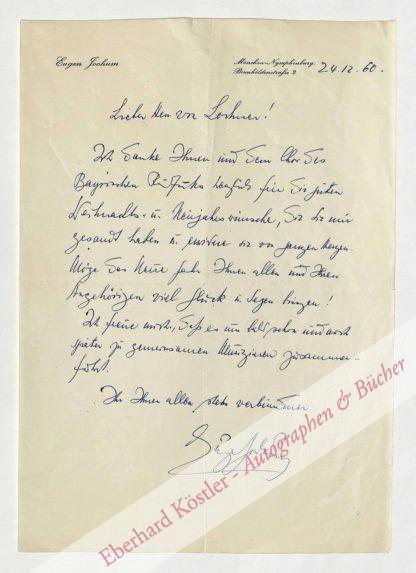 Eugen Jochum
München-Nymphenburg
Brunhildenstraße 2
24.12.60.
Lieber Herr von Lochner!
Ich danke Ihnen und dem Chor des
Bayrischen Rundfunks herzlich für die guten
Weihnachts- u. Neujahrswünsche, die Sie mir
gesandt haben u. erwidre sie von ganzem Herzen.
Möge das Neue Jahr Ihnen allen und Ihren
Angehörigen viel Glück u. Segen bringen!
Ich freue mich, daß es uns bald schon und auch
später zu gemeinsamem Musizieren zusammen-
führt.
Ihr Ihnen allen stets verbundener
Eugen Jochum
Eberhard Köstler - Autographen & Bücher